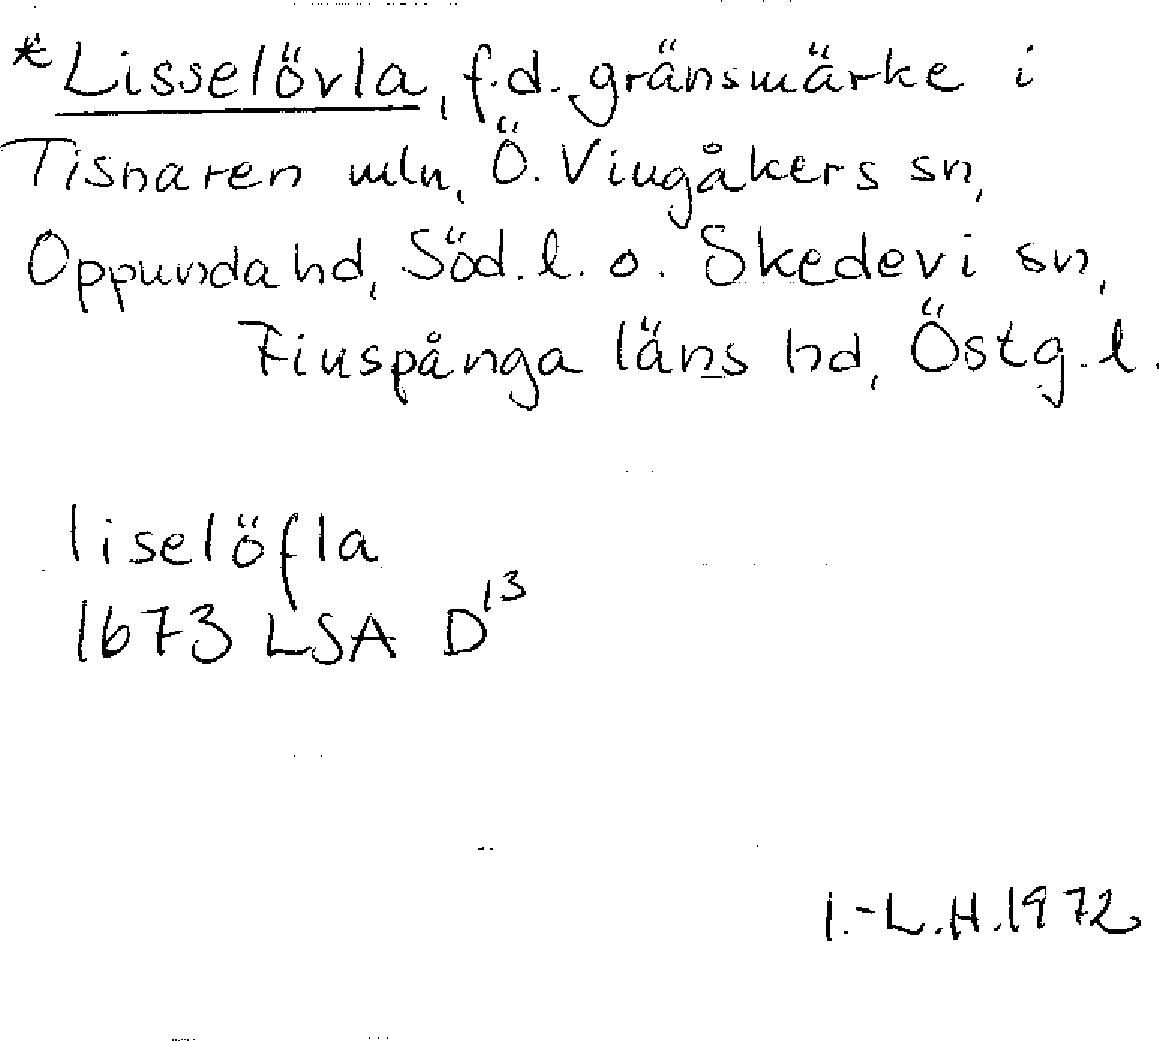 *Lisselövla, f.d. gränsmärke i
Tisnaren mln, Ö. Vingåkers sn,
Oppunda hd, Söd. l. o. Skedevi sn,
Finspånga läns hd, Östg. l.
liselöfla
1673 LSA D¹³
I.-L.H. 1972